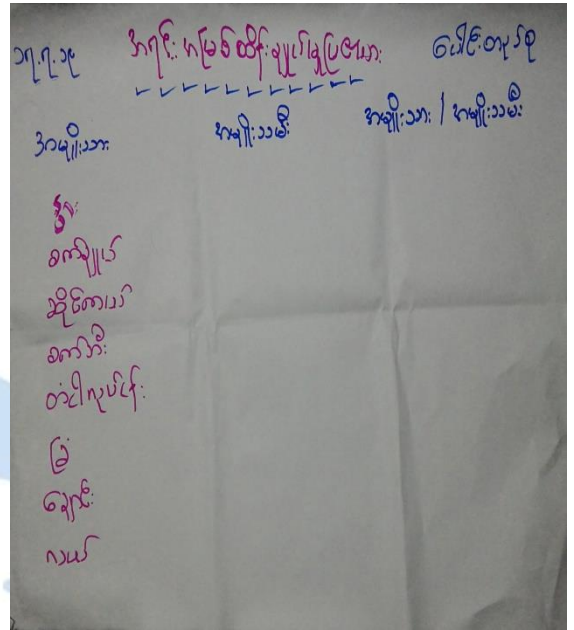 ၁၇.၇.၁၉ အရင်းအမြစ်ထိန်းချုပ်မှုပြဇယား ပေါင်းတလုပ်စု
အမျိုးသား အမျိုးသမီး အမျိုးသား / အမျိုးသမီး
နွား
စက်ချုပ်
ဆိုင်ကယ်
စက်ဘီး
တံငါလုပ်ငန်း
ခြံ
ချောင်း
လယ်